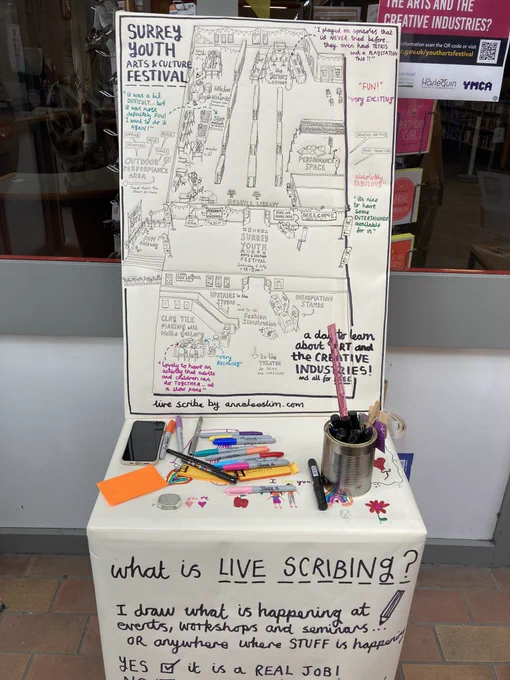 THE ARTS AND THE
CREATIVE INDUSTRIES?
Harlequin
YMCA
SURREY
YOUTH
ARTS & CULTURE
FESTIVAL
"I played on consoles that
i'd NEVER tried before...
they even had TETRIS
and a PLAYSTATION
"It was a bit
DIFFICULT... but
it was most
definitely FUN!
I want to do it
AGAIN!"
"FUN!"
"very EXCITING"
OUTDOOR
PERFORMANCE
AREA
PERFORMANCE
SPACE
absolutely
FABULOUS
"its nice
to have
some
ENTERTAINMENT
available
for us"
REDHILL LIBRARY
WELCOME
SURREY
YOUTH
ARTS & CULTURE
FESTIVAL
UPSTAIRS in the
STUDIO
INFORMATION
STANDS
Fashion
Illustration
CLAY TILE
MAKING with
"very
RELAXING"
to the
THEATRE
"lovely to have an
activity that adults
and children can
do TOGETHER... at
a slow pace"
a day to learn
about ART and
the CREATIVE
INDUSTRIES!
and all for FREE
live scribe by annaleeslim.com
what is LIVE SCRIBING?
I draw what is happening at
events, workshops and seminars...
OR anywhere where STUFF is happening
YES it is a REAL JOB!